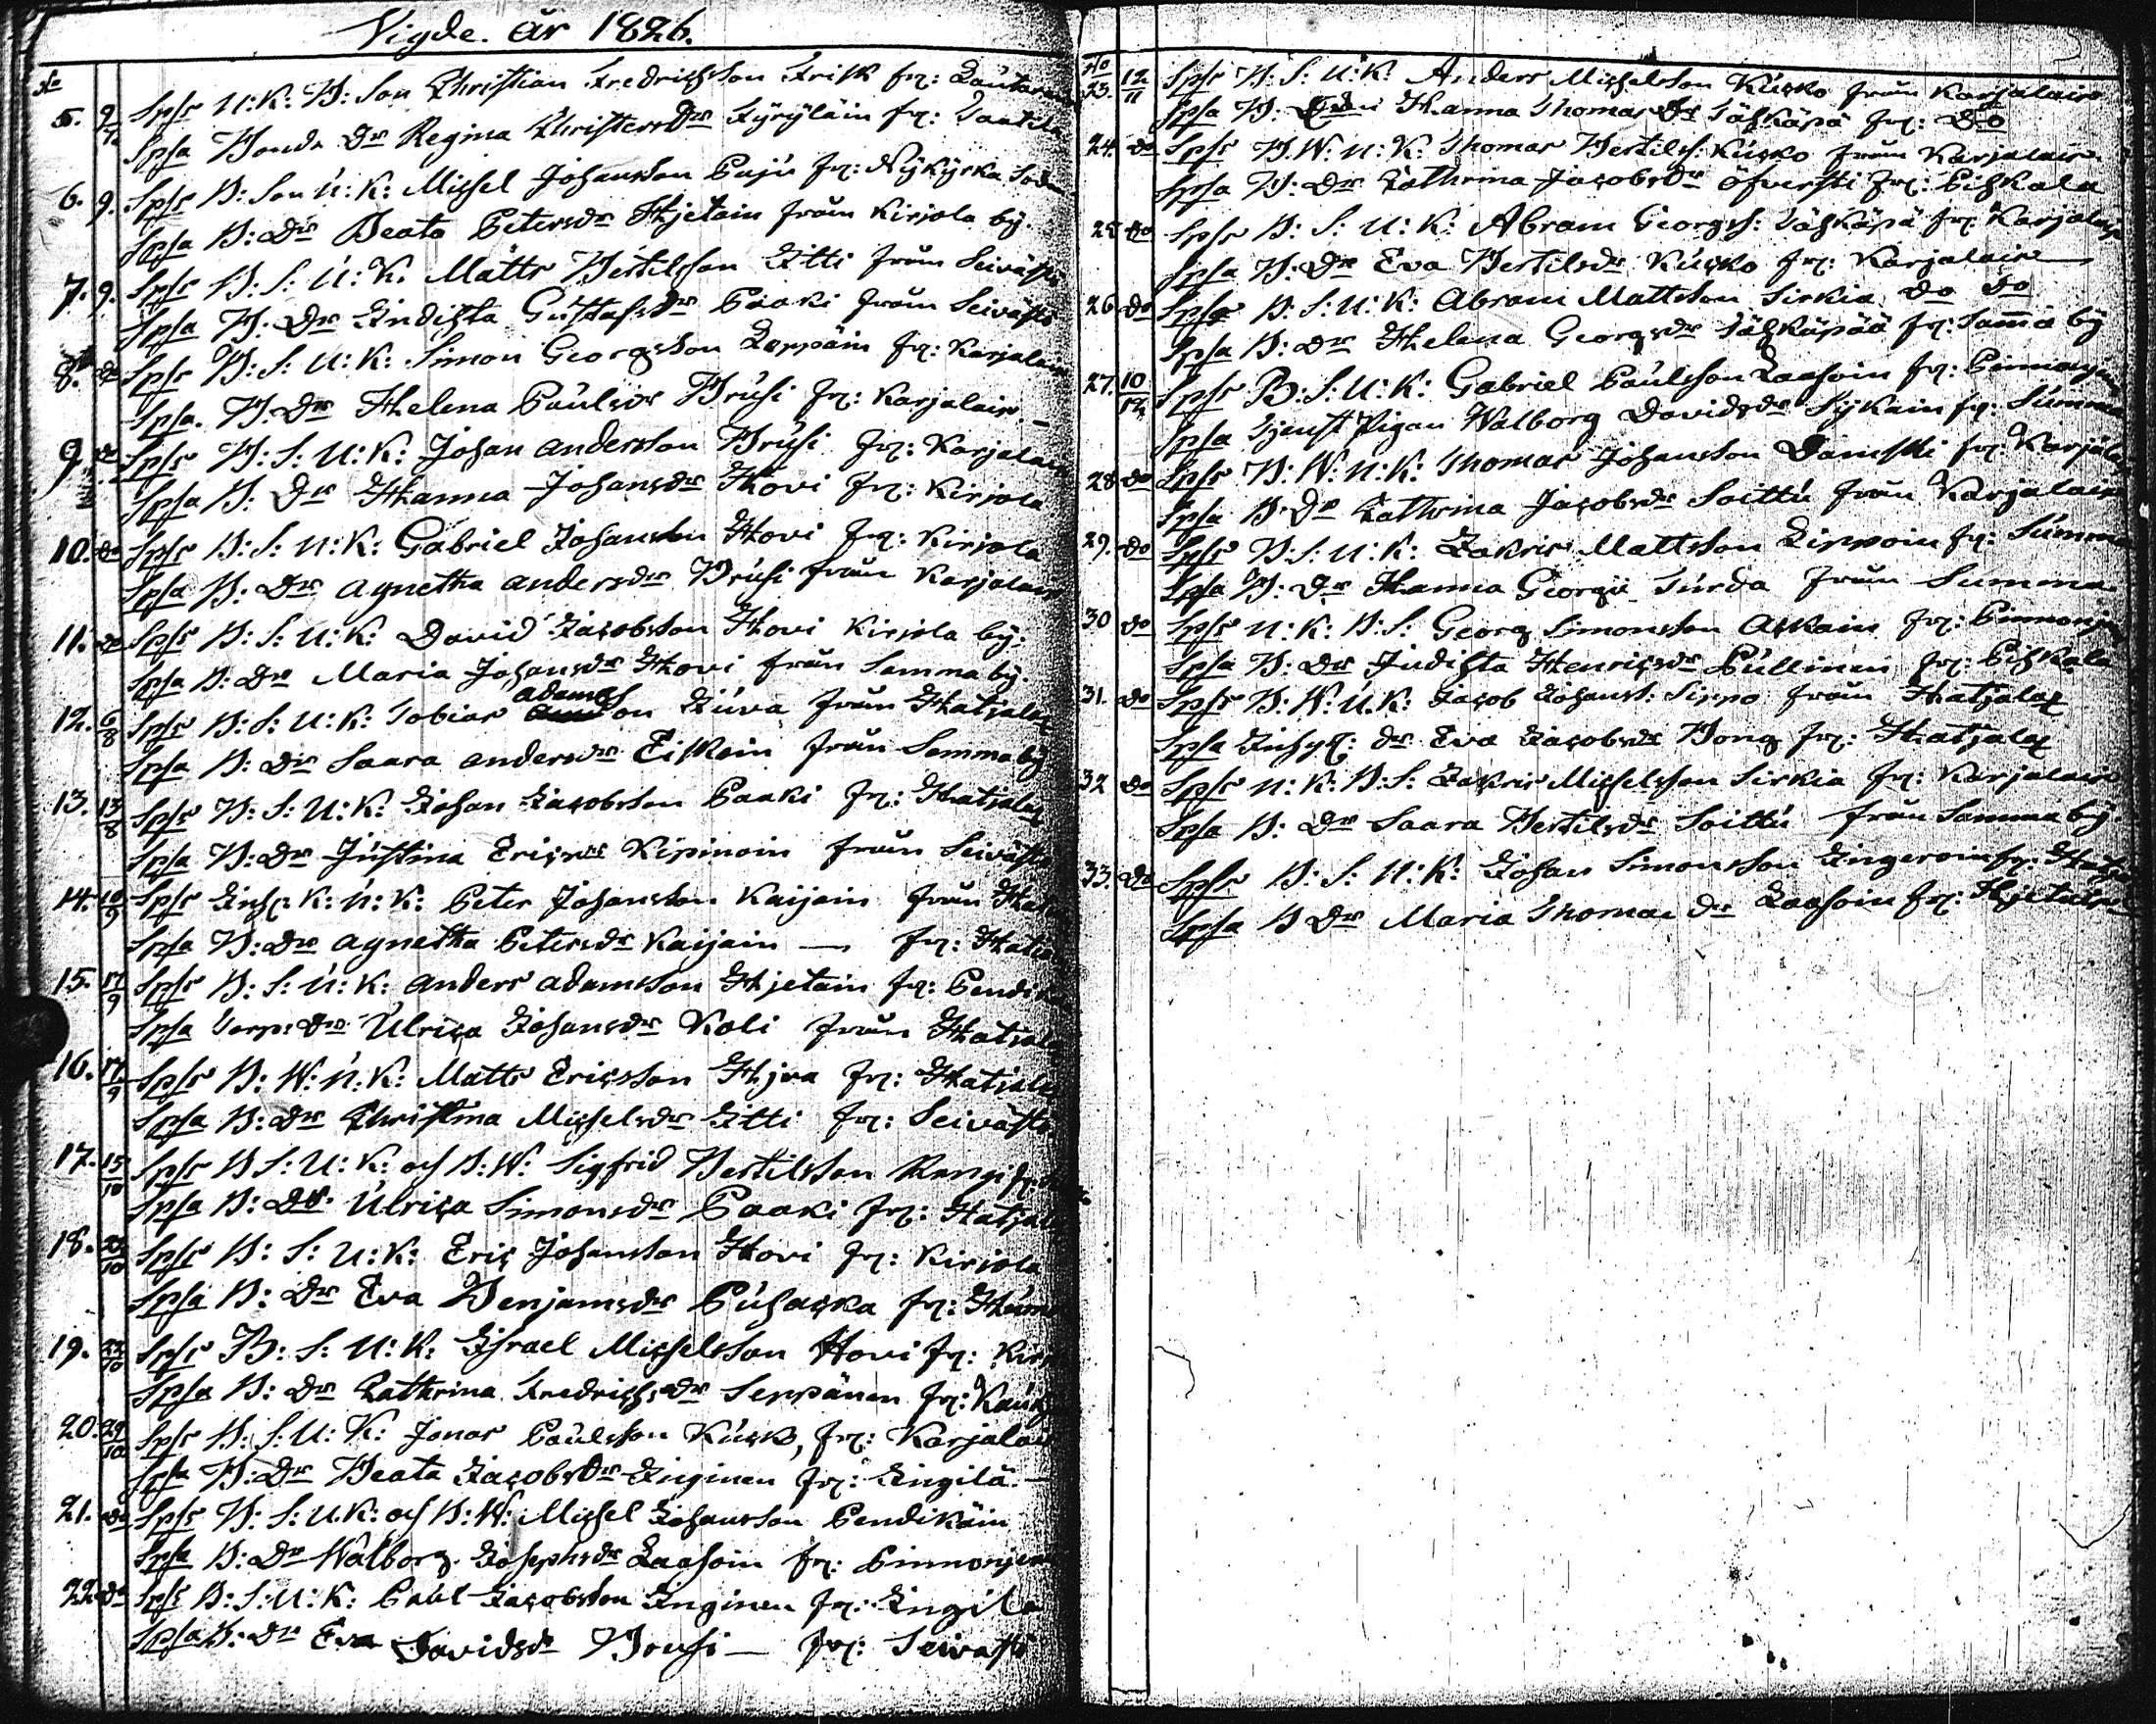 Vigde. år 1826.
No
5. 9/7. Spse U:K: B: Son Christian Fredrichsson Frisk fr:
Spsa Bonde Dr Regina Christersdr Kyryläin fr:
6. 9. Spse B: Son U:K: Michel Johansson Paju fr: Nykyrka
Spsa B: Dr Beata Petersdr Hjetain från Kirjola by.
7. 9. Spse B: S: U: K. Matts Bertilsson Kitti från Seivästö
Spsa B. Dr Judihta Gustafsdr Paaki från Seivästö
8. do Spse B: S: U: K: Simon Georgsson Loppäin fr: Karjalais
Spsa. B. Dr Helena Paulsdr Brusi fr: Karjalais.
9. do Spse B: S: U: K: Johan Andersson Brusi fr: Karjalais
Spsa B: Dr Hanna Johansdr Hovi fr: Kirjola
10. do Spse B: S: U: K: Gabriel Johansson Hovi fr: Kirjola
Spsa B: Dr Agnetha Andersdr Brusi från Karjalais
11. do Spse B: S: U: K: David Jacobsson Hovi Kirjola by.
Spsa B: Dr Maria Johansdr Hovi från Somma by.
12. 6/8 Spse B: S: U: K: Tobias Adamsson från Hatjalax
Spsa B: Dr Saara Andersdr från Somma by
13. 13/8 Spse B: S: U: K: Johan Jacobsson Paaki fr: Hatjalax
Spsa B: Dr Justina Ericsdr Kipinoin från Seivästö
14. 10/9 Spse K: U: K: Peter Johansson Kaijain från
Spsa B: Dr Agnetha Petersdr Kaijain — fr:
15. 17/9 Spse B: S: U: K: Anders Adamsson Hjetain fr:
Spsa Torp: Dr Ulrica Johansdr Koli från Hatjalax
16. 17/9 Spse B: W: U: K: Matts Ericsson Hjra fr: Hatjalax
Spsa B: Dr Christina Michelsdr Kitti fr: Seivästö.
17. 15/10 Spse B S: U: K: och B: W: Sigfrid Bertilsson
Spsa B: Dr Ulrica Simonsdr Paaki fr: Hatjalax
18. 22/10 Spse B: S: U: K: Eric Johansson Hovi fr: Kirjola
Spsa B: Dr Eva Benjamsdr Puhacka fr:
19. 22/10 Spse B: S: U: K: Israel Michelsson Hovi fr:
Spsa B: Dr Cathrina Fredrichsdr Seppänen fr:
20. 29/10 Spse B: S: U: K: Jonas Paulsson Kusko, fr: Karjalais
Spsa B: Dr Beata Jacobsdr Inginen fr: Ingilä.
21. do Spse B: S: U: K: och B: W: Michel Johansson Pendikäin
Spsa B: Dr Walborg Josephsdr Laasoin fr: Pinnonjemi
22. do Spse B: S: U: K: Paul Jacobsson Inginen fr: Ingilä
Spsa B: Dr Eva Davidsdr Brusi — fr: Seivästö
No
23. 12/11 Spse B: S: U: K: Anders Michelsson Kusko från Karjalais
Spsa B. Hanna Thomasdr Tähkäpä fr: do
24. do Spse B. W: U: K: Thomas Bertils: Kusko från Karjalais.
Spsa B: Dr Cathrina Jacobsdr Öfversti fr: Pihkala
25. do Spse B: S: U: K: Abram Georgs: Tähkäpä fr: Karjalais
Spsa B: Dr Eva Bertilsdr Kusko fr: Karjalais
26. do Spse B: S: U: K: Abram Mattsson Sirkia do do
Spsa B: Dr Helena Georgsdr Tähkäpää fr: Somma by
27. 10/12 Spse B: S: U: K: Gabriel Paulsson Laasoin fr: Pinnonjemi
Spsa Tjenst Pigan Walborg Davidsdr Sykäin fr: Summa
28. do Spse B: W: U: K: Thomas Johansson Damski fr: Karjalais
Spsa B. Dr Cathrina Jacobsdr Soittu från Karjalais
29. do Spse B: S: U: K: Zakris Mattsson Lippoin fr: Summa
Spsa B: Dr Hanna Georgs Turda från Summa
30 do Spse U: K: B: S: Georg Simonsson Askain fr: Pinnonjemi
Spsa B: Dr Judihta Henricsdr Pullinen fr: Pihkala
31. do Spse B: W: U. K: Jacob Johanss: Sippo från Hatjalax
Spsa Inhys: dr Eva Jacobsdr Bong fr: Hatjalax
32 do Spse U: K: B: S: Zakris Michelsson Sirkia fr: Karjalais
Spsa B: Dr Saara Bertilsdr Soittu från Somma by.
33. do Spse B: S: U: K: Johan Simonsson Ingeroin fr:
Spsa B Dr Maria Thomas dr Laasoin fr: